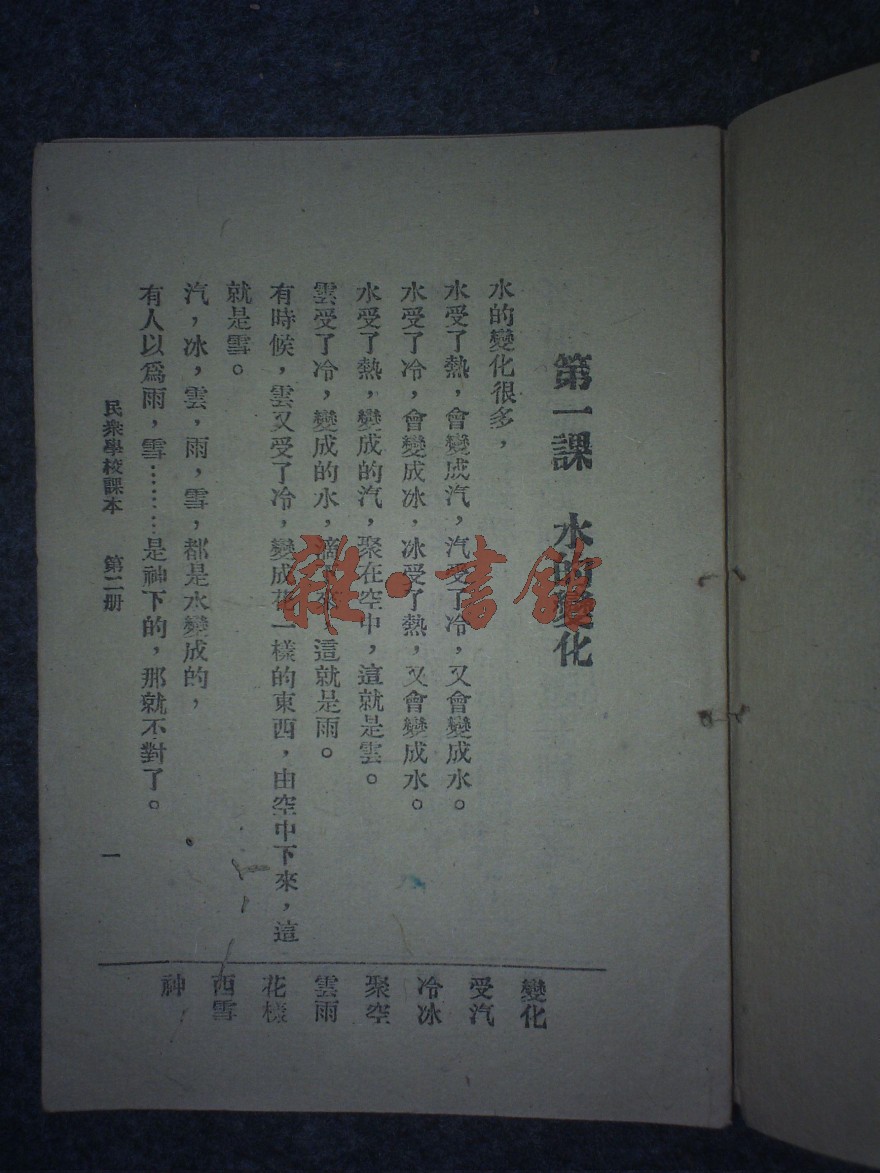 第一課　水的變化
水的變化很多，
水受了熱，會變成汽，汽受了冷，又會變成水。
水受了冷，會變成冰，冰受了熱，又會變成水。
水受了熱，變成的汽，聚在空中，這就是雲。
雲受了冷，變成的水，滴 這就是雨。
有時候，雲又受了冷，變成花一樣的東西，由空中下來，這
就是雪。
汽，冰，雲，雨，雪，都是水變成的，
有人以爲雨，雪………是神下的，那就不對了。
變化
受汽
冷冰
聚空
雲雨
花樣
西雪
神
民衆學校課本　第二册
一
雜·書館